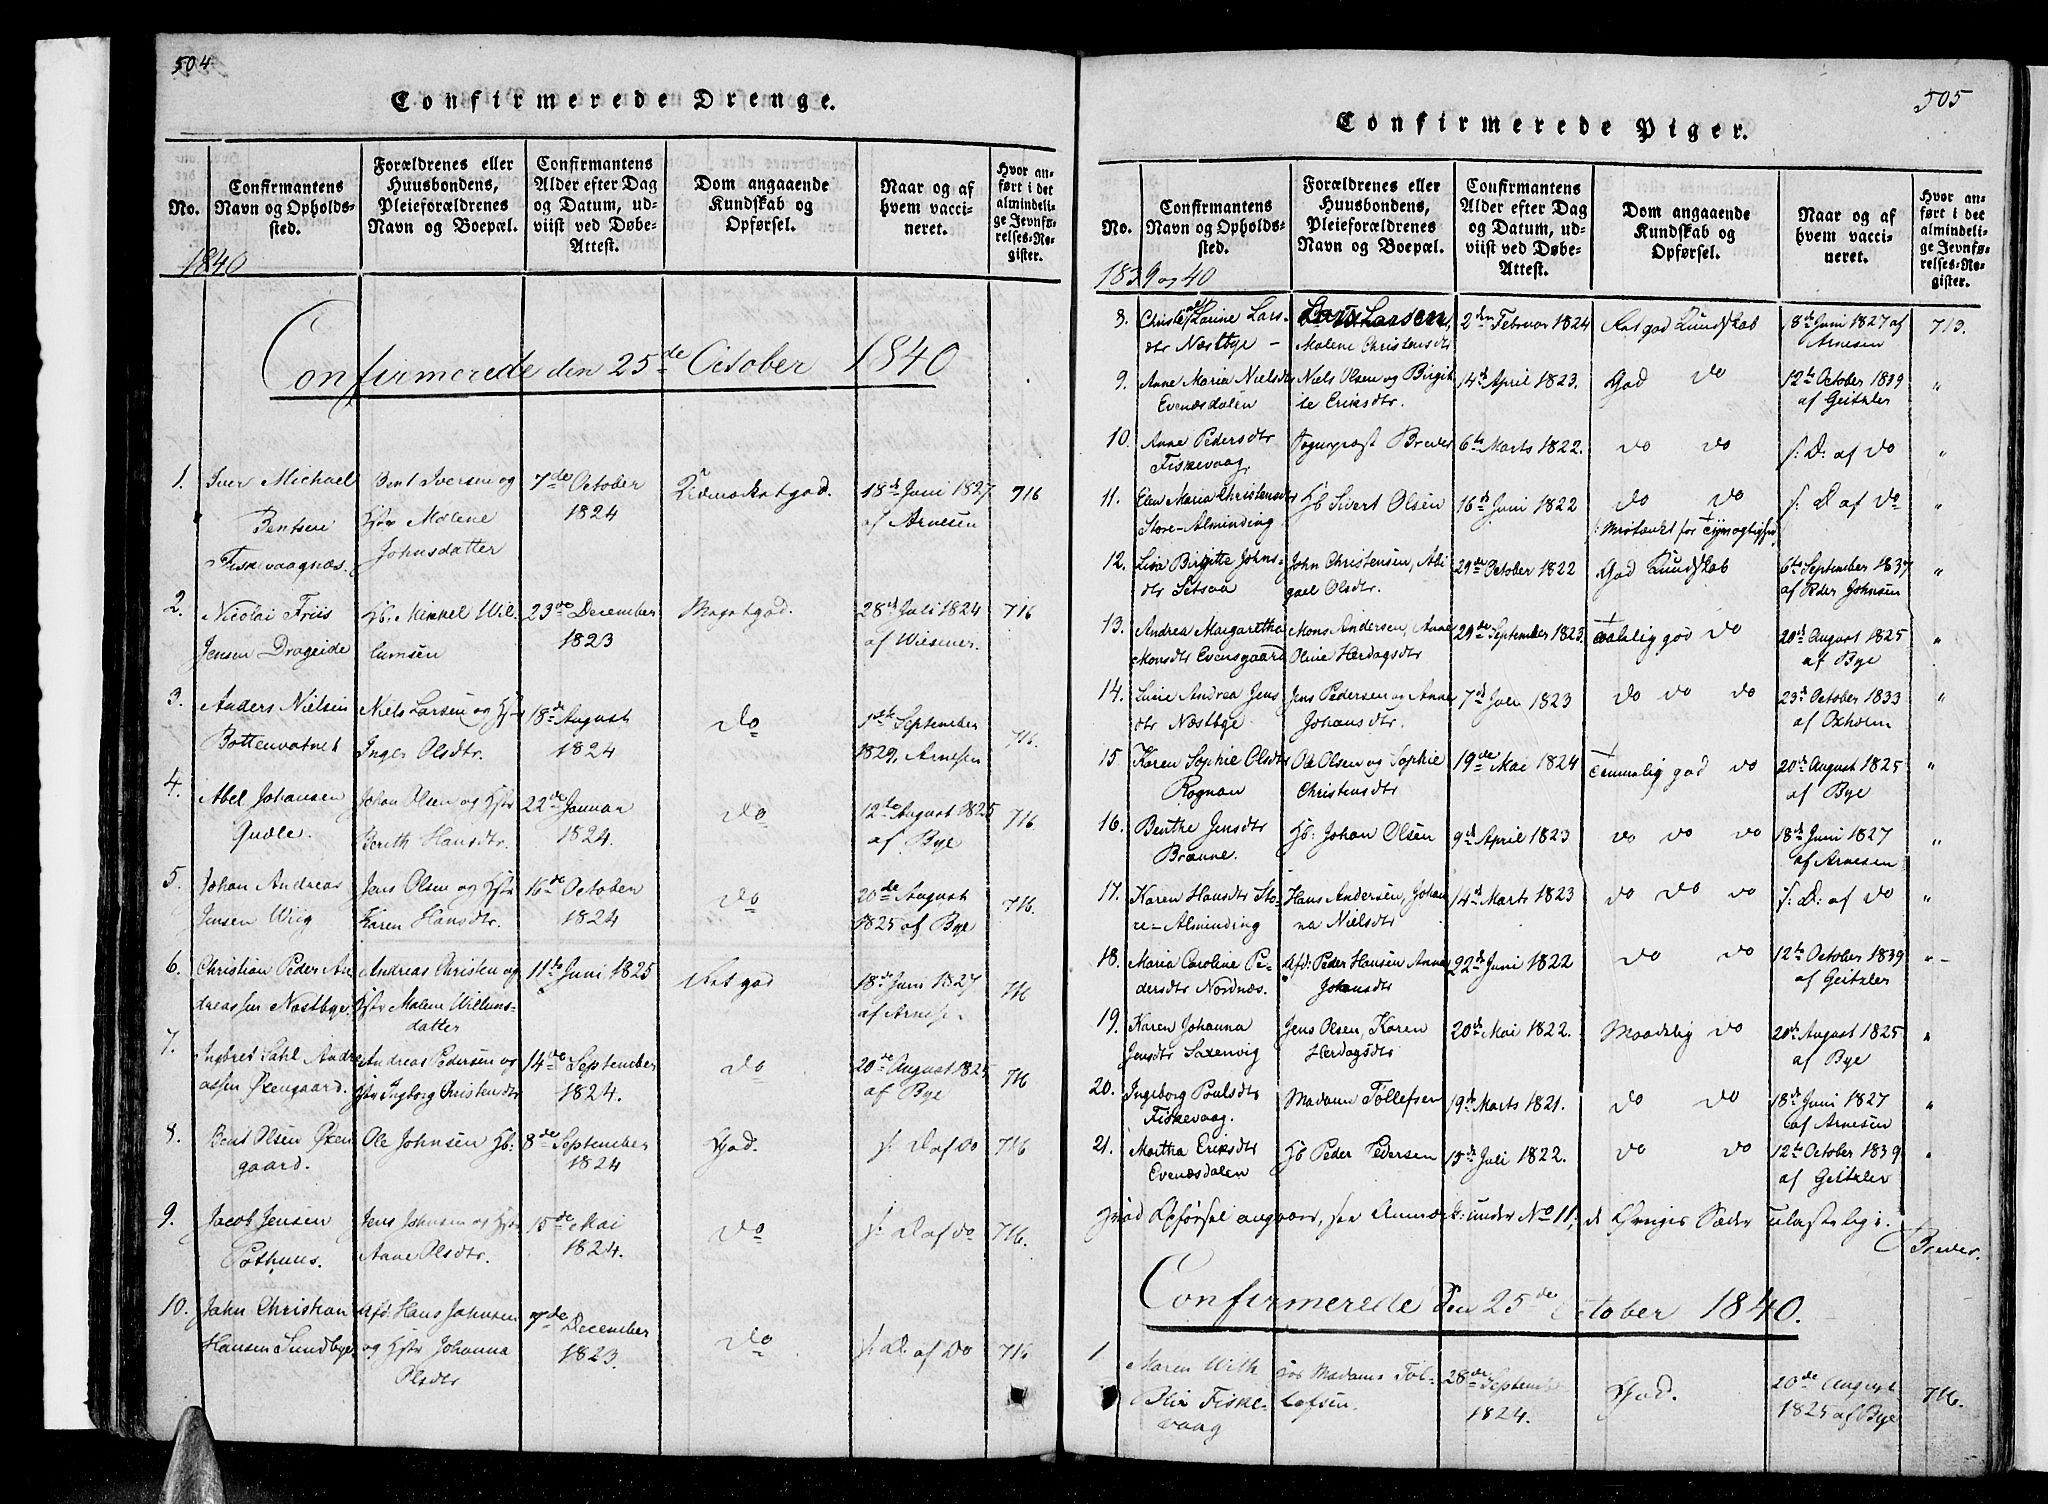 504.
Confirmerede Drenge.
No.
Confirmantens
Navn og Opholds-
sted.
Forældrenes eller
Huusbondens,
Pleieforældrenes
Navn og Boepæl.
Confirmantens
Alder efter Dag
og Datum, ud-
viist ved Døbe-
Attest.
Dom angaaende
Kundskab og
Opførsel.
Naar og af
hvem vacci-
neret.
Hvor an-
ført i det
almindeli-
ge Jevnfø-
relses-Re-
gister.
1840
Confirmerede den 25de October 1840
1. Iver Michael Bent Iversen og 7de October 18de Juni 1827 716
Bentsen Hstr Malene 1824 af Arnesen
Fiskevaagnæs. Johnsdatter
2. Nicolai Friis Hb: Mikkel Wil- 23de December Megetgod. 28de Juli 1824 716
Jensen Drageide lumsen 1823 af Wiesener.
3. Anders Nielsen Niels Larsen og Hstr 18de August do 1ste September
Bottenvatnet Inger Olsdtr. 1824 1829, Arnesen 716.
4. Abel Johansen Johan Olsen og Hstr 22de Januar do 12te August 1825 716
Qvæle. Berith Hansdtr. 1824. af Bye
5. Johan Andreas Jens Olsen og Hstr 16de October do 20de August 716.
Jensen Wiig Karen Hansdtr. 1824 1825 af Bye
6. Christian Peder An- Andreas Christen og 11te Juni 1825 Ret god 18de Juni 1827 716
dreassen Næstbye. Hstr Malene Willums- af Arnese-
datter
7. Ingbret Dahl Andre- Andreas Pedersen og 14de September do 20de August 1825 716
assen Øxengaard. Hstr Ingborg Christensdtr 1824. af Bye
8. Bent Olsen Øxen- Ole Johnsen Hb: 8de September God. s: D af do 716
gaard. 1824
9. Jacob Jensen Jens Johnsen og Hstr 15de Mai do s: D af do 716.
Pothuus. Anne Olsdtr. 1824.
10. John Christian Afd: Hans Johnsen 7de December do s: D: af Do 716
Hansen Sundbye. og Hstr Johanna 1823.
Olsdtr
505
Confirmerede Piger.
No.
Confirmantens
Navn og Opholds-
sted.
Forældrenes eller
Huusbondens,
Pleieforældrenes
Navn og Boepæl.
Confirmantens
Alder efter Dag
og Datum, ud-
viist ved Døbe-
Attest.
Dom angaaende
Kundskab og
Opførsel.
Naar og af
hvem vacci-
neret.
Hvor an-
ført i det
almindeli-
ge Jevnfø-
relses-Re-
gister.
1839 og 40
8. Laurine Lars- Lars Larsen, 2den Februar 1824 Ret god Kundskab 18de Juni 1827 af 713.
dtr Næstbye - Malene Christensdtr Arnesen
9. Anne Maria Nielsdtr Niels Olsen og Birgit- 14de April 1823. God do 12te October 1839 "
Evenesdalen te Eriksdtr. af Geitzler
10. Anne Pedersdtr Sogneprest Breder 6te Marts 1822. do do s: D: af do "
Fiskevaag
11. Elen Maria Christensdtr Hb Sivert Olsen 16de Juni 1822 do do s: D af do "
Store-Alminding
12. Lisa Birgitte Johns- John Christensen, Abi- 29de October 1822 God Kundskab 6te September 1837 "
dtr Setsaa gael Olsdtr. af Peder Johnsen
13. Andrea Margaretha Mons Andersen, Anne 29de September 1823. Temalig god do 20de August 1825 "
Monsdtr Evensgaard Oline Herdagsdtr af Bye
14. Line Andrea Jens Jens Pedersen og Anne 7de Juli 1823 do do do 23de October 1833 "
dtr Næstbye Johansdtr. af Oxholm
15 Karen Sophie Olsdtr Ole Olsen og Sophie 19de Mai 1824 Temmelig god do 20de August 1825 "
Rognan Christensdtr af Bye
16. Benthe Jensdtr Hb: Johan Olsen 9de April 1823 do do do 18de Juni 1827 "
Brænne. af Arnesen
17. Karen Hansdtr Sto- Hans Andersen, Johan- 14de Marts 1823 do do do s: D: af do "
re-Alminding na Nielsdtr
18. Maria Caroline Pe- Afd: Peder Hansen Anne 22de Juni 1822 do do 12te October 1839 "
dersdtr Nordnæs. Johansdtr af Geitzler
19. Karen Johanna Jens Olsen, Karen 20de Mai 1822. Maadelig do 20de August 1825 "
Jensdtr Saxenvig Herdagsdtr af Bye
20. Ingeborg Poulsdtr Madame Tollefsen 19de Marts 1821. do do 18de Juni 1827 "
Fiskevaag. af Arnesen
21. Martha Eriksdtr Hb Peder Pedersen 15de Juli 1822. do do 12te October 1839 "
Evenesdalen af Geitzler
hvad Opførsel angaaer, see Anmærk: under No 11, de Øvriges Sæder ulastelige.
Breder.
Confirmerede den 25de October 1840.
1 Maren With hos Madame Tol- 28de Septembe 20de August 716.
Blix Fiske- lefsen. 1824. God. 1825 af Bye
vaag